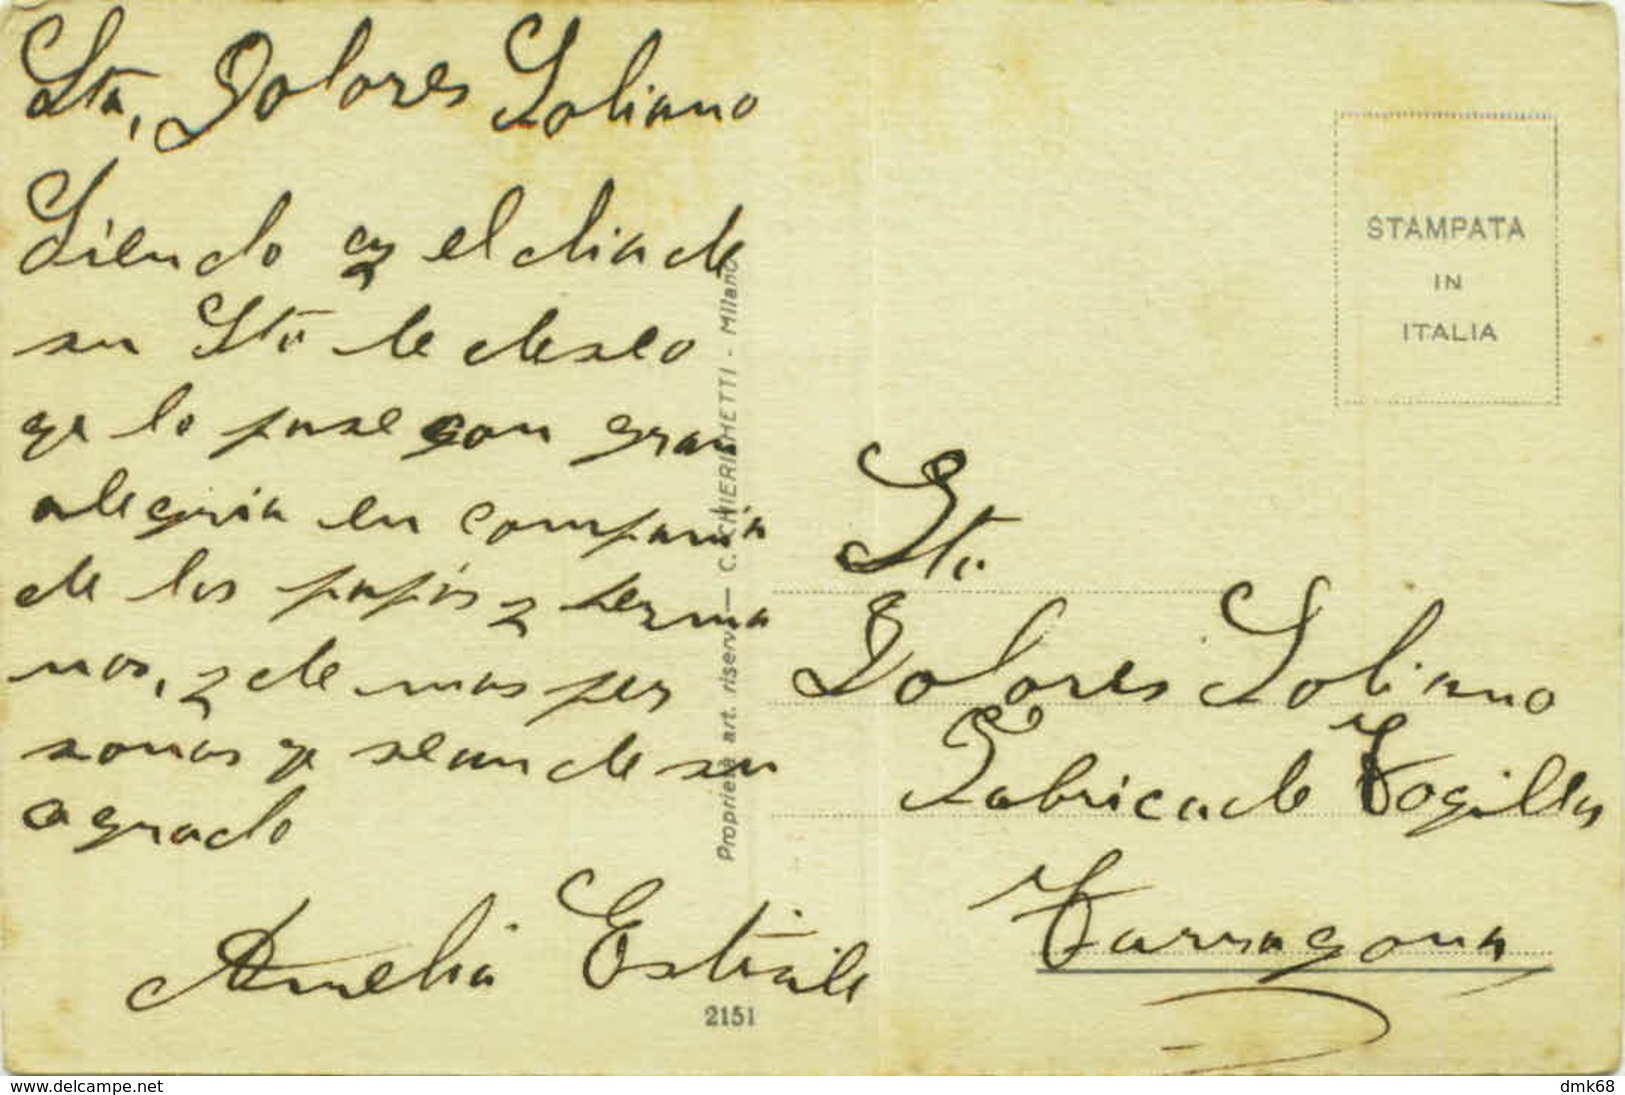 Sta, Dolores Soliano
Siendo oy el dia de
su Sto. le deseo
qe lo pase con gran
alegria en compania
de los papás y herma
nos, y de mas per
sonas qe sean de su
agrado
Amelia
Proprietà art. riserv. — C. CHIERICHETTI - Milano
2151
STAMPATA
IN
ITALIA
Sta.
Dolores Soliano
Fabrica de
Tarragona
www.delcampe.net
dmk68